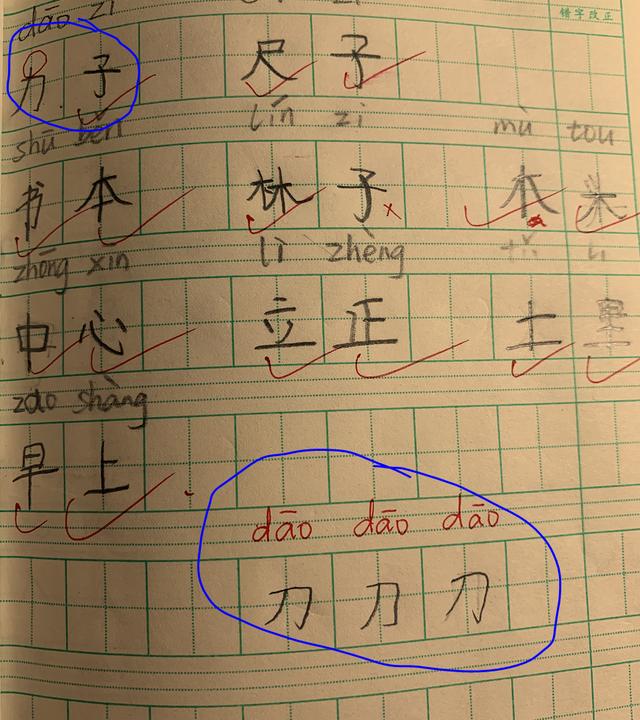 dāo zi
错字改正
力子 尺子
shū běn lín zi mù tou
书本 林子 本头
zhōng xīn lì zhèng
中心 立正 土里
zao shàng
早上
dāo dāo dāo
刀 刀 刀